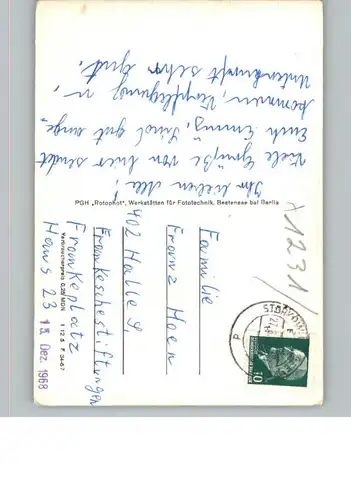 Ihr lieben Alle!
Viele Grüße von hier sendet
Euch Emmy, Sind gut ange-
kommen, Verpflegung u,
Unterkunft sehr gut.
PGH „Rotophot", Werkstätten für Fototechnik, Bestensee bei Berlin
x1231/
STORKOW
Familie
Franz Hoen
402 Halle S,
Frankeschestiftungen
Frankeplatz
Haus 23
Verbraucherpreis 0,20 MDN I 12 5 F 54-67
13. Dez. 1968